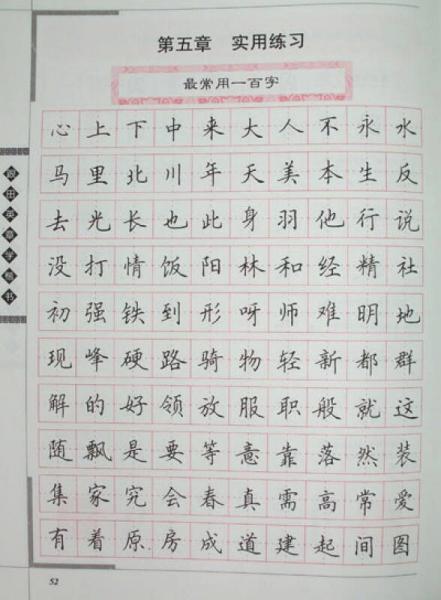 第五章 实用练习
最常用一百字
心上下中来大人不永水
马里北川年天美本生反
去光长也此身羽他行说
没打情饭阳林和经精社
初强铁到形呀师难明地
现峰硬路骑物轻新都群
解的好领放服职般就这
随飘是要等意靠落然装
集家究会春真需高常爱
有着原房成道建起间图
52